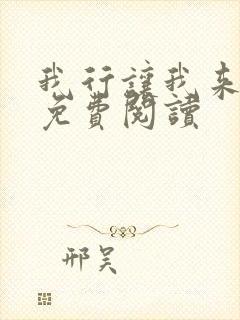 我行讓我來
免費閱讀
邢昊